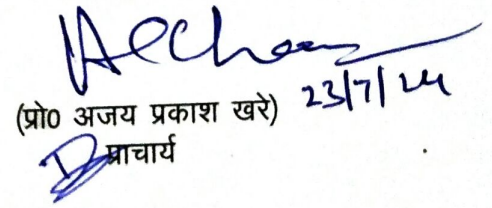 (प्रो0 अजय प्रकाश खरे) 23/7/24
प्राचार्य